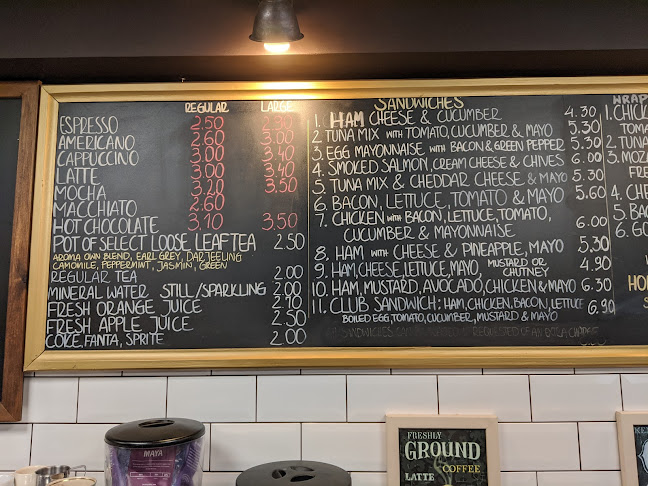 REGULAR LARGE
ESPRESSO 2.50
AMERICANO 2.60 3.00
CAPPUCCINO 3.00 3.40
LATTE 3.00 3.40
MOCHA 3.20 3.50
MACCHIATO 2.60
HOT CHOCOLATE 3.10 3.50
POT OF SELECT LOOSE LEAF TEA 2.50
AROMA OWN BLEND, EARL GREY, DARJEELING
CAMOMILE, PEPPERMINT, JASMIN, GREEN
REGULAR TEA 2.00
MINERAL WATER STILL/SPARKLING 2.00
FRESH ORANGE JUICE 2.70
FRESH APPLE JUICE 2.50
COKE, FANTA, SPRITE 2.00
SANDWICHES
1. HAM CHEESE & CUCUMBER 4.30
2. TUNA MIX WITH TOMATO, CUCUMBER & MAYO 5.30
3. EGG MAYONNAISE WITH BACON & GREEN PEPPER 5.30
4. SMOKED SALMON, CREAM CHEESE & CHIVES 6.00
5. TUNA MIX & CHEDDAR CHEESE & MAYO 5.30
6. BACON, LETTUCE, TOMATO & MAYO 5.60
7. CHICKEN WITH BACON, LETTUCE, TOMATO,
CUCUMBER & MAYONNAISE 6.00
8. HAM WITH CHEESE & PINEAPPLE, MAYO 5.30
9. HAM, CHEESE, LETTUCE, MAYO, MUSTARD OR CHUTNEY 4.90
10. HAM, MUSTARD, AVOCADO, CHICKEN & MAYO 6.30
11. CLUB SANDWICH: HAM, CHICKEN, BACON, LETTUCE 6.90
BOILED EGG, TOMATO, CUCUMBER, MUSTARD & MAYO
WRAP
1. CHICK
TOM
2. TUNA
3. MOZ
FRE
4. CH
5. BAC
6. GO
HO
MAYA
FRESHLY
GROUND
COFFEE
LATTE